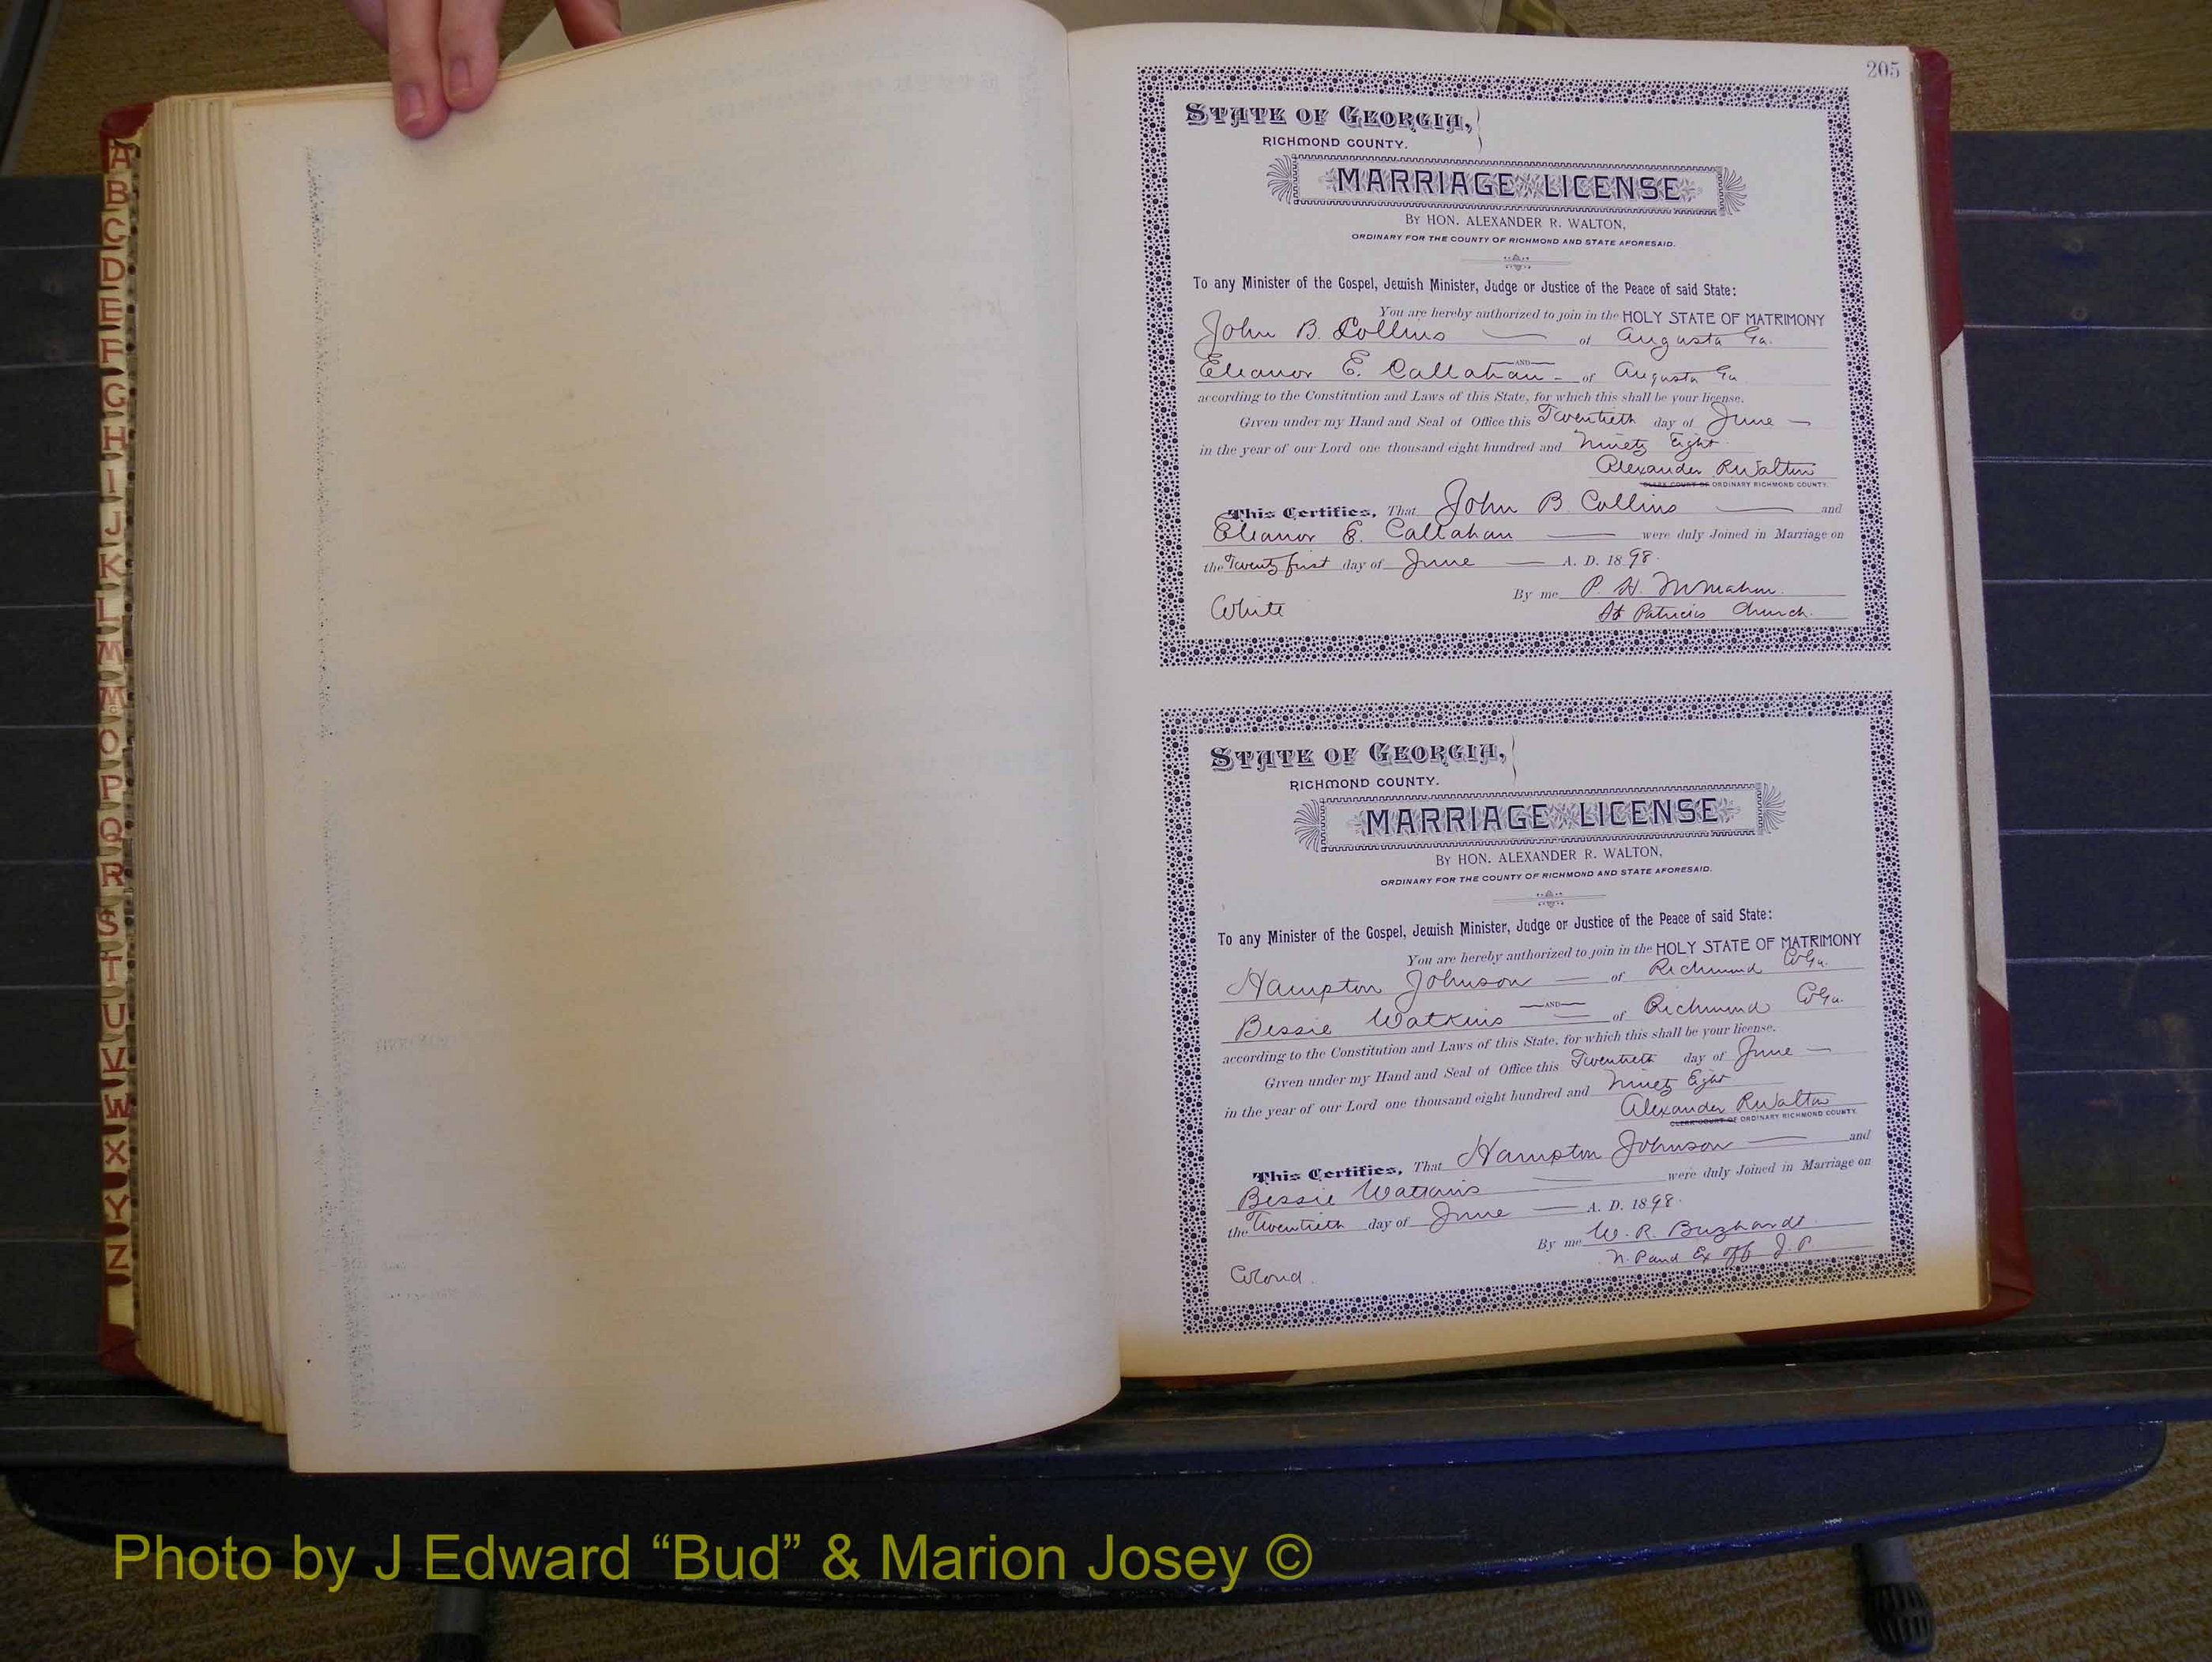 A
B
C
D
E
F
G
H
I
J
K
L
M
Mc
O
P
Q
R
S
T
U
V
W
X
Y
Z
205
STATE OF GEORGIA,
RICHMOND COUNTY.
MARRIAGE LICENSE
BY HON. ALEXANDER R. WALTON,
ORDINARY FOR THE COUNTY OF RICHMOND AND STATE AFORESAID.
To any Minister of the Gospel, Jewish Minister, Judge or Justice of the Peace of said State:
You are hereby authorized to join in the HOLY STATE OF MATRIMONY
John B. Collins of Augusta Ga.
AND
Eleanor E. Callahan of Augusta Ga
according to the Constitution and Laws of this State, for which this shall be your license.
Given under my Hand and Seal of Office this Twentieth day of June
in the year of our Lord one thousand eight hundred and Ninety Eight
Alexander R Walton
CLERK COURT OF ORDINARY RICHMOND COUNTY.
This Certifies, That John B Collins and
Eleanor E. Callahan were duly Joined in Marriage on
the Twenty first day of June A. D. 1898.
By me P. H. McMahon.
White St Patricks Church.
STATE OF GEORGIA,
RICHMOND COUNTY.
MARRIAGE LICENSE
BY HON. ALEXANDER R. WALTON,
ORDINARY FOR THE COUNTY OF RICHMOND AND STATE AFORESAID.
To any Minister of the Gospel, Jewish Minister, Judge or Justice of the Peace of said State:
You are hereby authorized to join in the HOLY STATE OF MATRIMONY
Hampton Johnson of Richmond Co Ga.
AND
Bessie Watkins of Richmond Co Ga.
according to the Constitution and Laws of this State, for which this shall be your license.
Given under my Hand and Seal of Office this Twentieth day of June
in the year of our Lord one thousand eight hundred and Ninety Eight
Alexander R Walton
CLERK COURT OF ORDINARY RICHMOND COUNTY.
This Certifies, That Hampton Johnson and
Bessie Watkins were duly Joined in Marriage on
the Twentieth day of June A. D. 1898.
By me W. R. Buzhardt
N. P and Ex Off J. P.
Colored.
Photo by J Edward “Bud” & Marion Josey ©